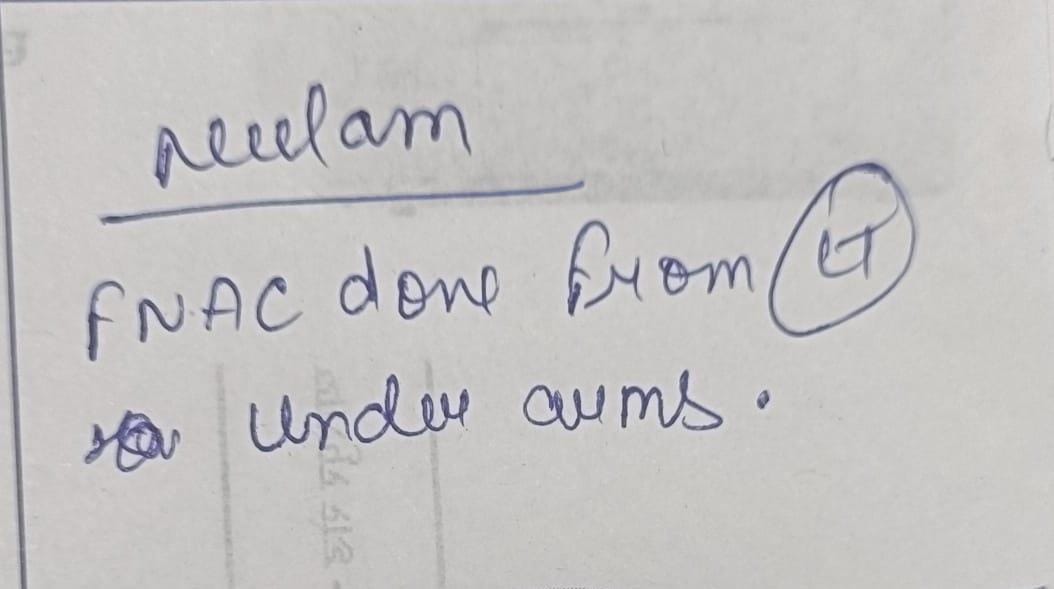 Neelam
FNAC done from LT
under arms.